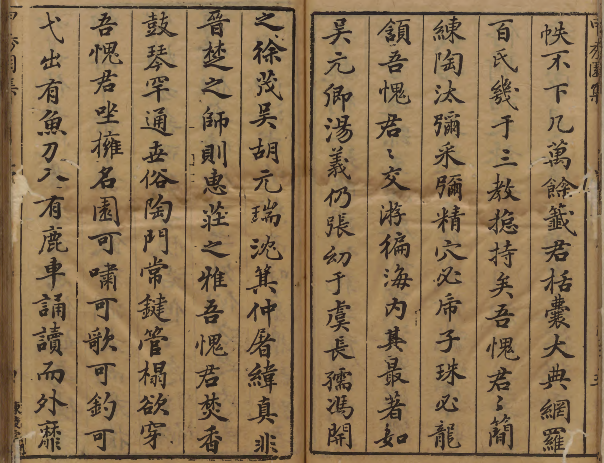 帙不下几萬餘籤君栝囊大典網羅
百氏幾于三教揔持矣吾愧君〻簡
練陶汰彌采彌精穴必帝子珠必龍
頷吾愧君〻交游徧海內其最著如
吳元卿湯義仍張幼于虞長孺馮開
之徐茂吳胡元瑞沈箕仲屠緯真非
晉楚之師則惠莊之雅吾愧君焚香
鼓琴罕通世俗陶門常鍵管榻欲穿
吾愧君坐擁名園可嘯可歌可釣可
弋出有魚刀入有鹿車誦讀而外靡